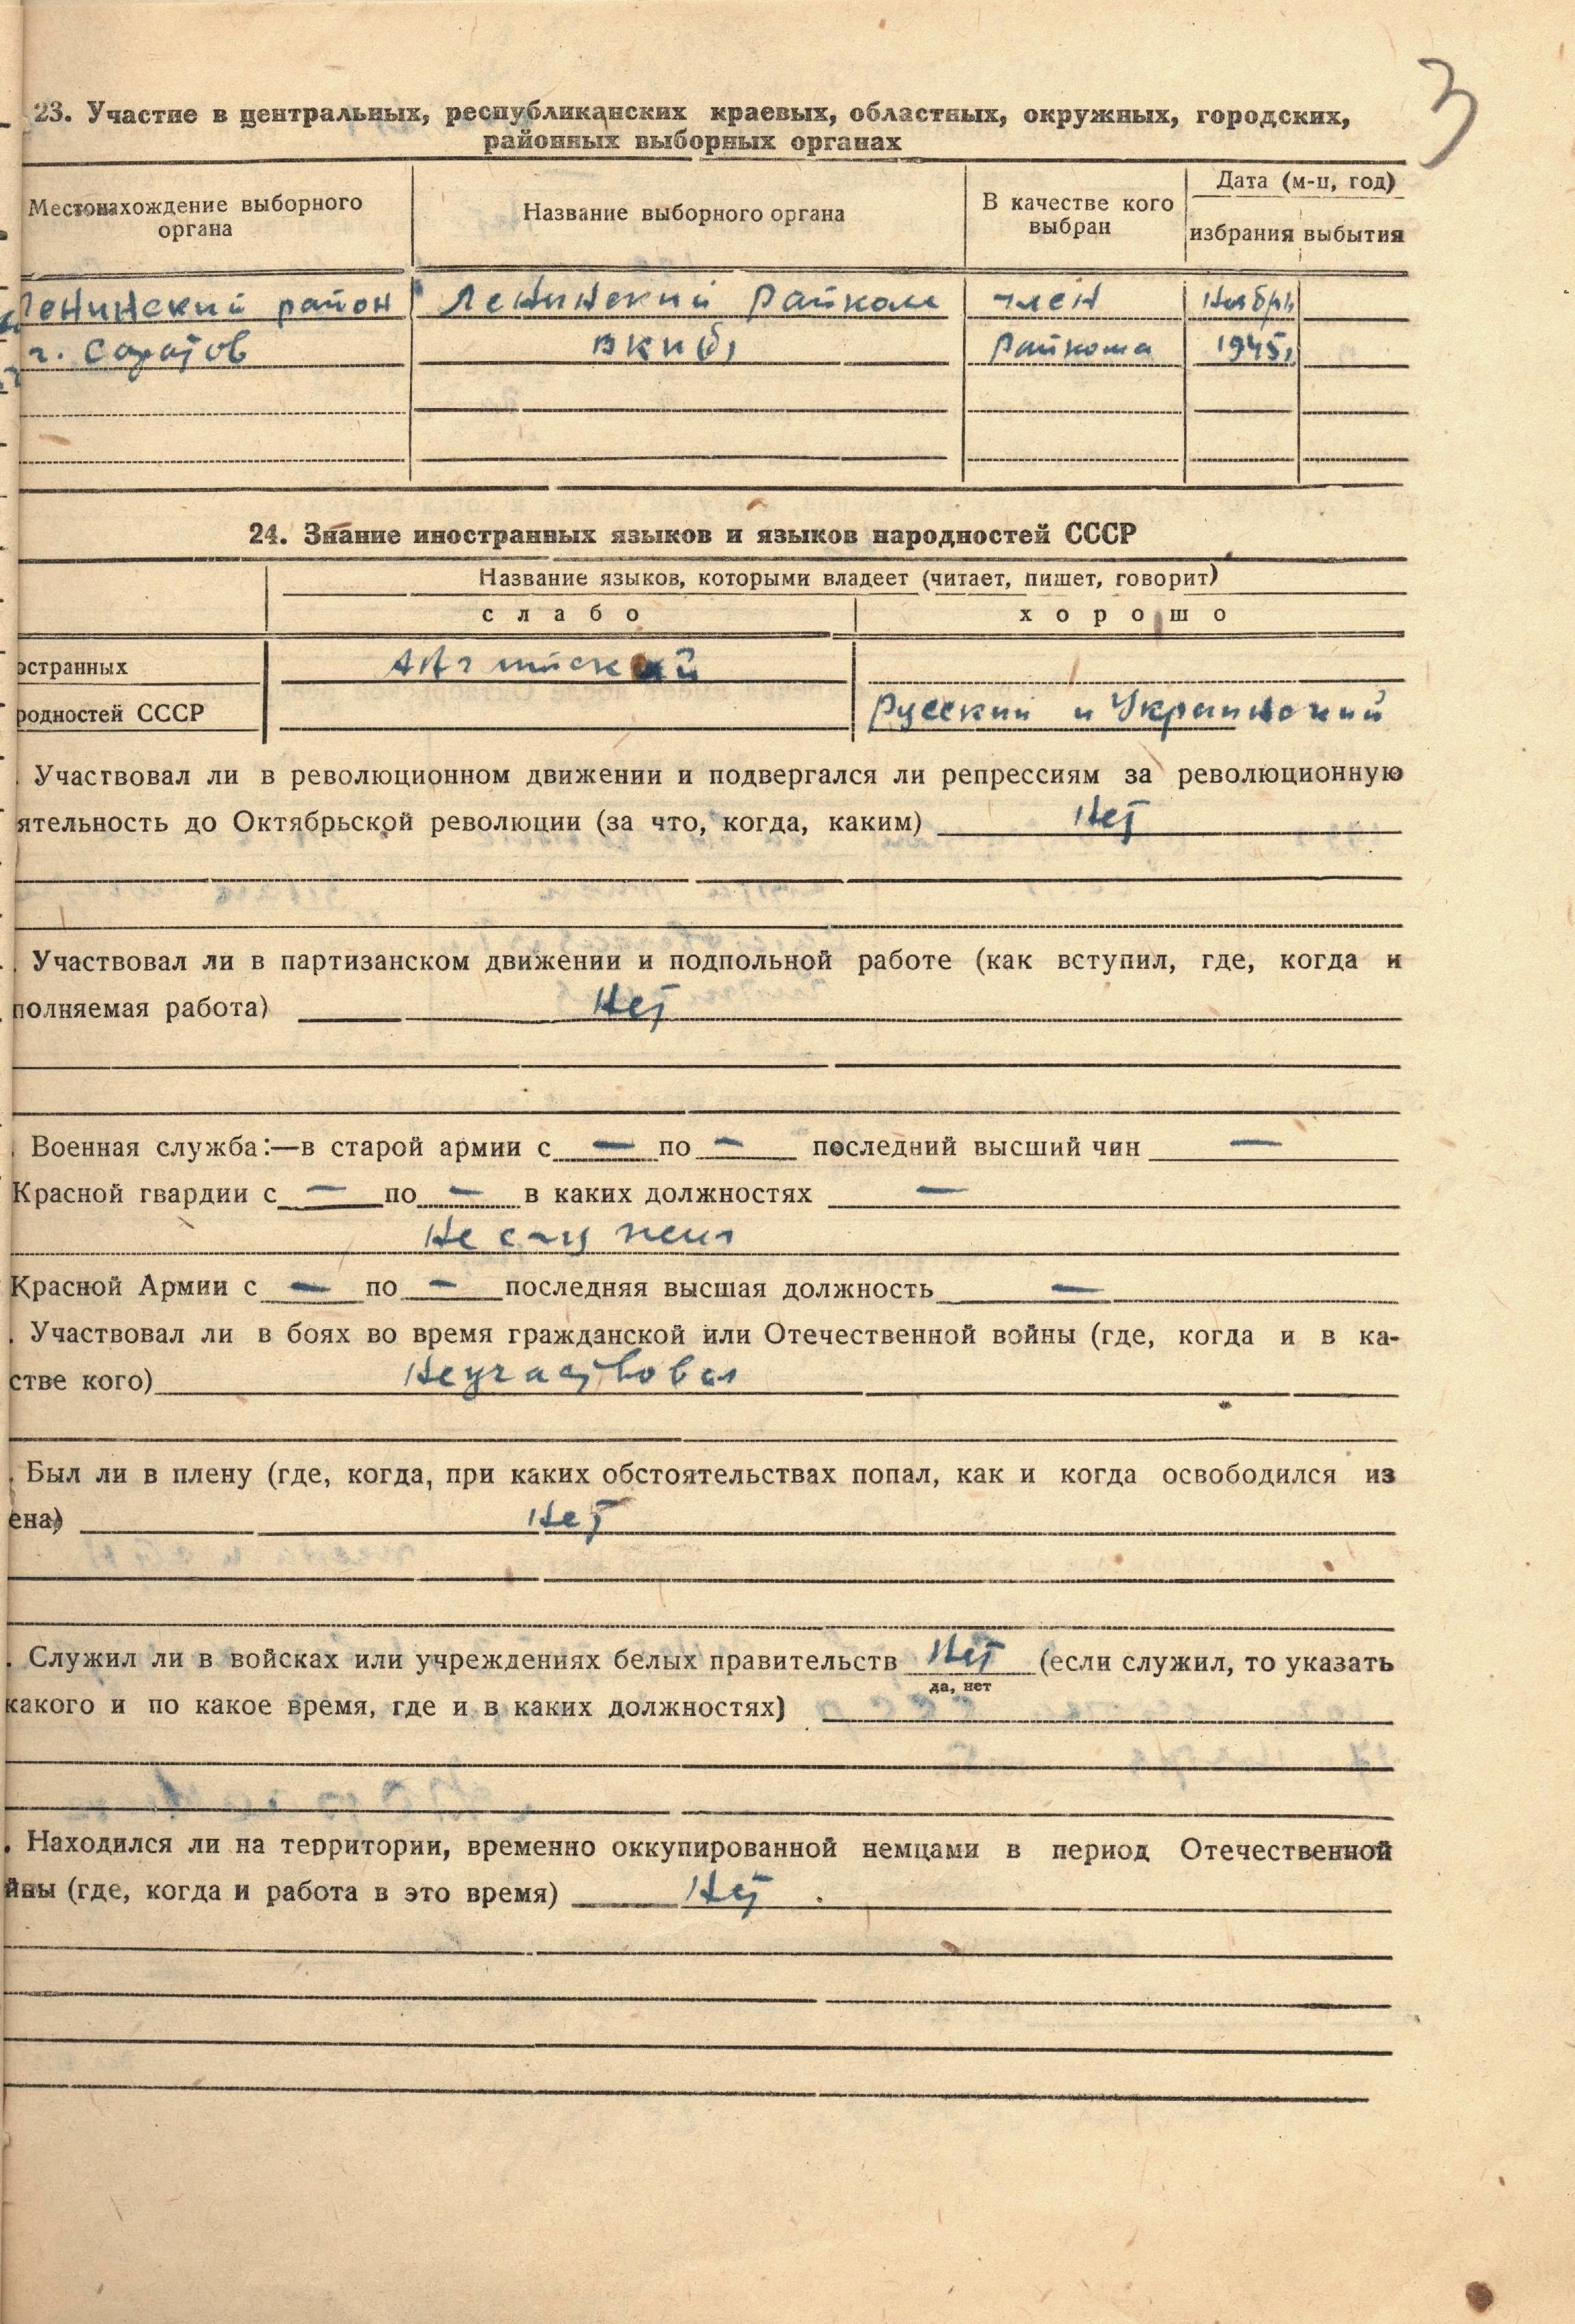 3
23. Участие в центральных, республиканских краевых, областных, окружных, городских,
районных выборных органах
Местонахождение выборного органа Название выборного органа В качестве кого выбран Дата (м-ц, год) избрания выбытия
Ленинский район Ленинский Райком член Ноябрь
г. Саратов ВКП(б) Райкома 1945г
24. Знание иностранных языков и языков народностей СССР
Название языков, которыми владеет (читает, пишет, говорит)
слабо хорошо
остранных Английский
родностей СССР Русский и Украинский
. Участвовал ли в революционном движении и подвергался ли репрессиям за революционную
ятельность до Октябрьской революции (за что, когда, каким) Нет
. Участвовал ли в партизанском движении и подпольной работе (как вступил, где, когда и
полняемая работа) Нет
. Военная служба:—в старой армии с — по — последний высший чин —
Красной гвардии с — по — в каких должностях —
Не служил
Красной Армии с — по — последняя высшая должность —
. Участвовал ли в боях во время гражданской или Отечественной войны (где, когда и в ка-
стве кого) Не участвовал
. Был ли в плену (где, когда, при каких обстоятельствах попал, как и когда освободился из
ена) Нет
. Служил ли в войсках или учреждениях белых правительств Нет (если служил, то указать
да, нет
какого и по какое время, где и в каких должностях)
. Находился ли на территории, временно оккупированной немцами в период Отечественной
йны (где, когда и работа в это время) Нет.